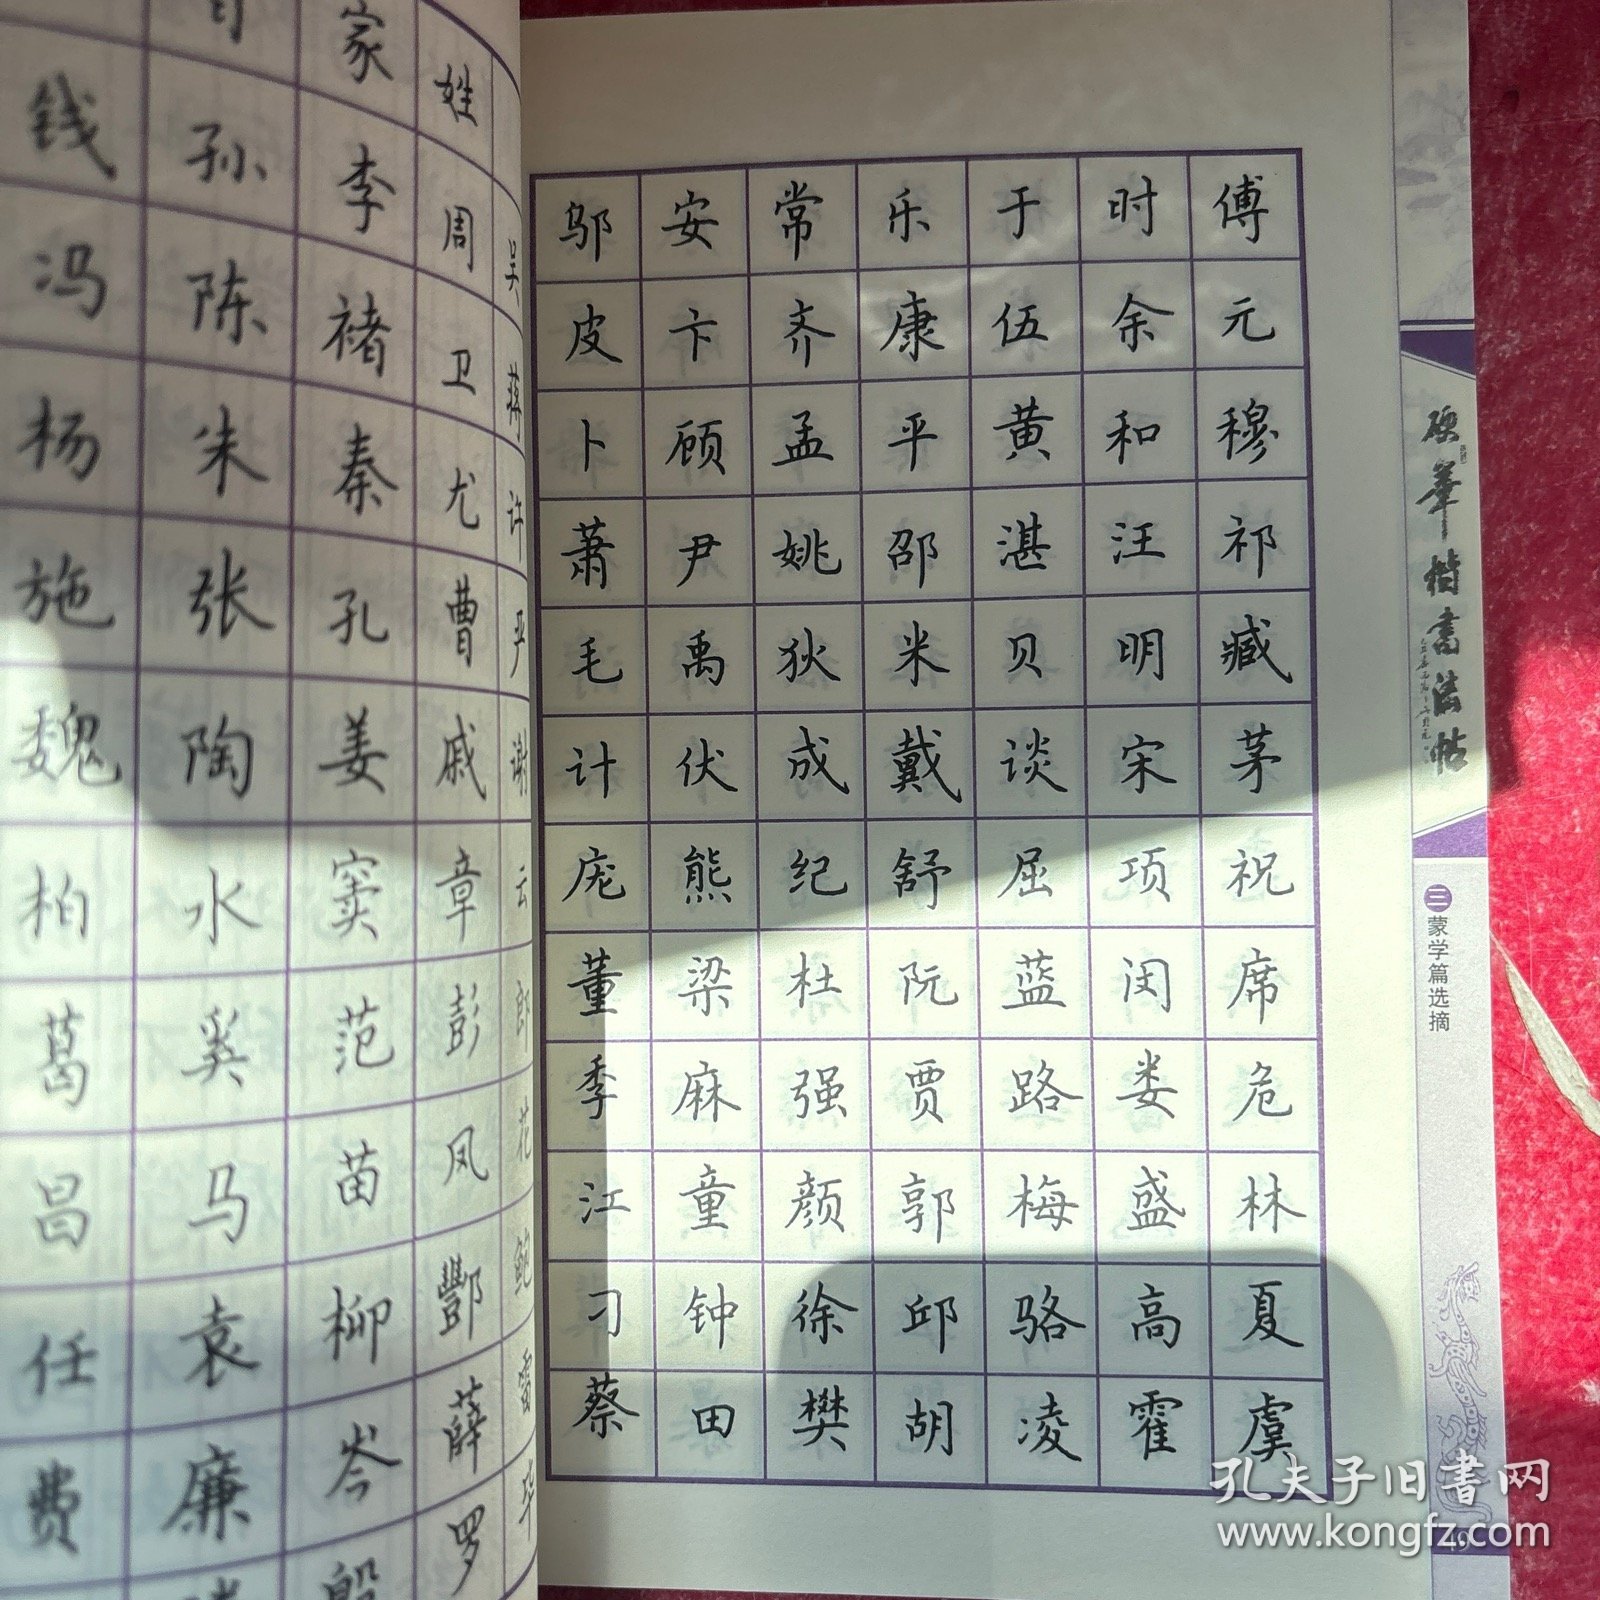 家姓
钱孙李周吴
冯陈褚卫蒋
杨朱秦尤许
施张孔曹严
魏陶姜戚谢
柏水窦章云
葛奚范彭郎
昌马苗凤花
任袁柳酆鲍
费廉岑薛雷
殷罗毕
邬安常乐于时傅
皮卞齐康伍余元
卜顾孟平黄和穆
萧尹姚邵湛汪祁
毛禹狄米贝明臧
计伏成戴谈宋茅
庞熊纪舒屈项祝
董梁杜阮蓝闵席
季麻强贾路娄危
江童颜郭梅盛林
刁钟徐邱骆高夏
蔡田樊胡凌霍虞
硬筆楷書法帖
三 蒙学篇选摘
49
孔夫子旧书网
www.kongfz.com